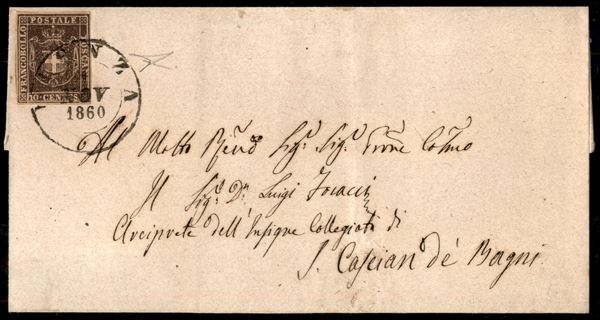 FRANCOBOLLO POSTALE TOSCANO
10 CENT
NZA
NOV
1860
Al Molto Rev.do Sig.r Sig.r Prone Colmo
Il Sig.r D.r Luigi
Arciprete dell'Insigne Collegiata di
S. Cascian de' Bagni